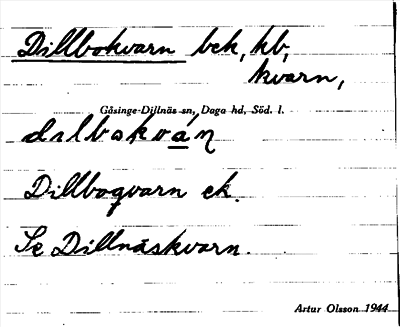 Dillbokvarn bek, kb,
kvarn,
Gåsinge-Dillnäs sn, Daga hd, Söd. l.
dilbokván
Dillboqvarn ek.
Se Dillnäskvarn.
Artur Olsson 1944